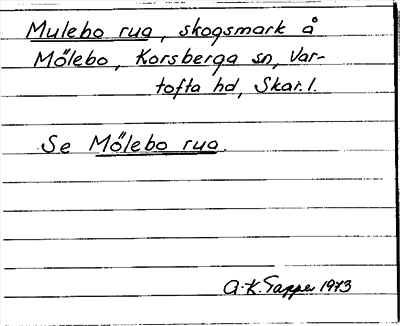 Mulebo rua, skogsmark å
Mőlebo, Korsberga sn, Var-
tofta hd, Skar. l.
Se Mőlebo rua.
A-K. Tapper 1973